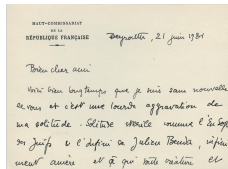 HAUT-COMMISSARIAT
DE LA
RÉPUBLIQUE FRANÇAISE
Beyrouth, 21 juin 1931
Bien cher ami
Voici bien longtemps que je suis sans nouvelles
de vous et c'est une lourde aggravation de
ma solitude. Solitude
ses Juifs à l'infini de Julien Benda,
ment amère et que toute et